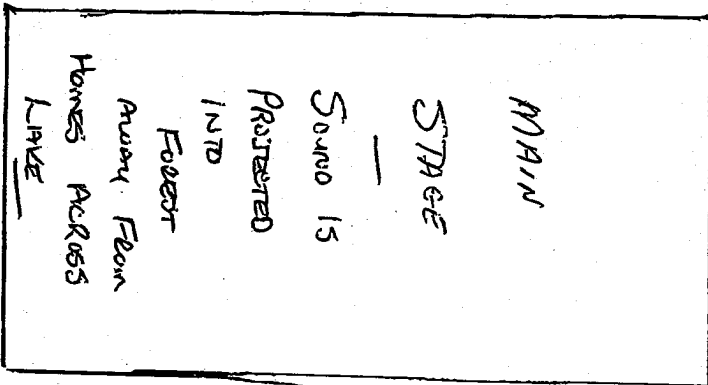 MAIN
STAGE
—
SOUND IS
PROJECTED
INTO
FOREST
AWAY FROM
HOMES ACROSS
LAKE